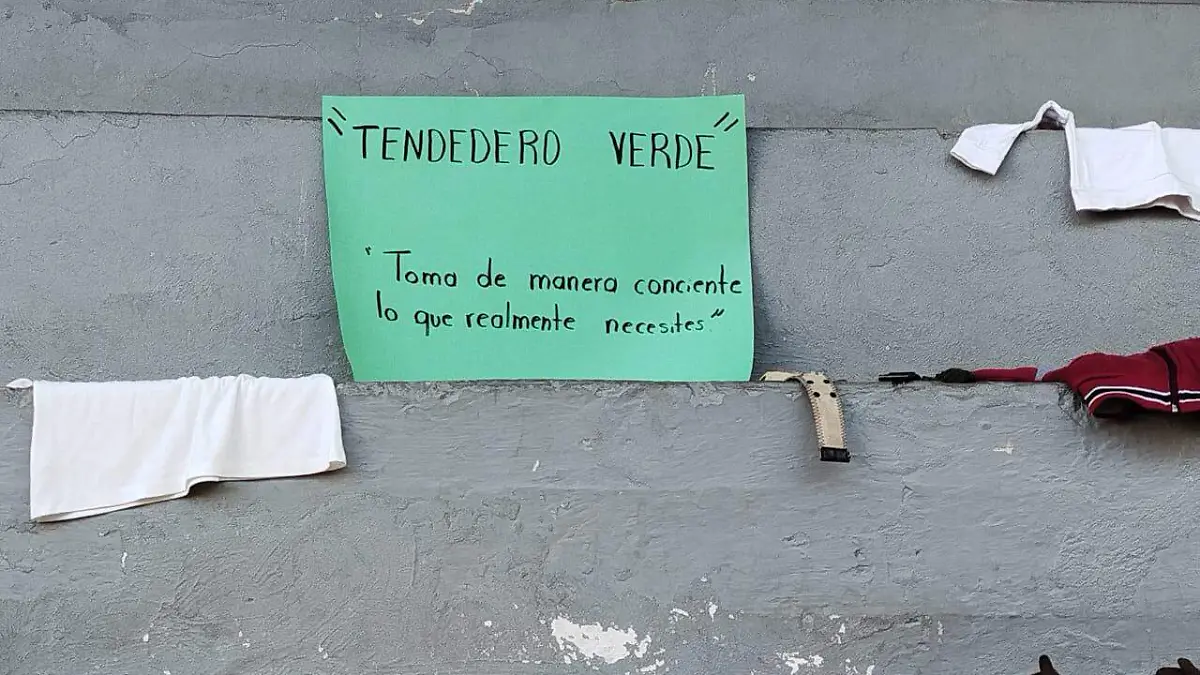 "TENDEDERO VERDE"
"Toma de manera conciente
lo que realmente necesites."